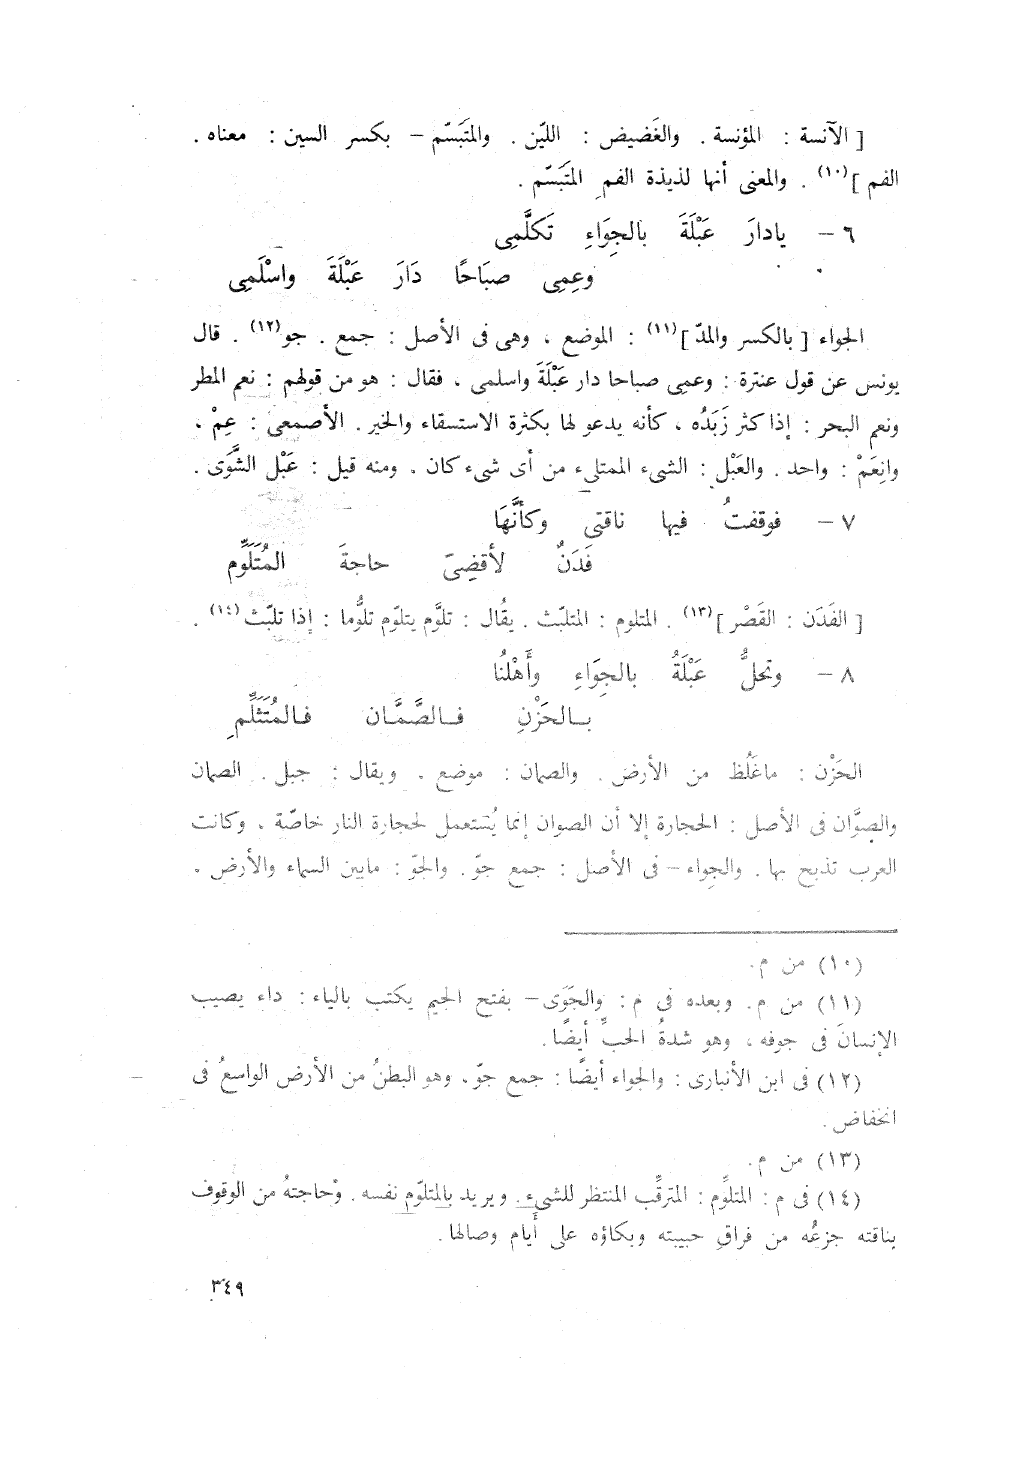 [ الآنسة : المؤنسة . والغَضيض : الليّن . والمتَبَسّم – بكسر السين : معناه .
الفم ](١٠) . والمعنى أنها لذيذة الفمِ المتَبَسّم .
٦ – يادارَ عَبْلَةَ بالجِوَاءِ تَكلَّمِى
وعِمِى صبَاحًا دَارَ عَبْلَةَ واسْلَمِى
الجواء [ بالكسر والمدّ ](١١) : الموضع ، وهى فى الأصل : جمع . جو(١٢) . قال
يونس عن قول عنترة : وعمى صباحا دار عَبْلَةَ واسلمى ، فقال : هو من قولهم : نعم المطر
ونعم البحر : إذا كثر زَبَدُه ، كأنه يدعو لها بكثرة الاستسقاء والخير . الأصمعى : عِمْ ،
وانِعَمْ : واحد . والعَبْل : الشىء الممتلىء من أى شىء كان . ومنه قيل : عَبْل الشَّوَى .
٧ – فوقفتُ فيها ناقتى وكأنَّهَا
فَدَنٌ لأقضِىَ حاجةَ المُتَلَوِّم
[ الفَدَن : القَصْر ](١٣) . المتلوم : المتلبّث . يقُال : تلوَّم يتلوّم تلوُّما : إذا تلبّث(١٤) .
٨ – وتحلُّ عَبْلَةُ بالجِوَاءِ وأَهْلُنا
بـالحَزْنِ فـالصَّمَّان فـالمُتَثَلِّمِ
الحَزْن : ماغَلُظ من الأرض . والصمان : موضع . ويقال : جبل . الصمان
والصوَّان فى الأصل : الحجارة إلا أن الصوان إنما يُستعمل لحجارة النار خاصّة ، وكانت
العرب تذبح بها . والجِواء – فى الأصل : جمع جوّ . والجوّ : مابين السماء والأرض .
(١٠) من م.
(١١) من م. وبعده فى م: والجَوَى – بفتح الجيم يكتب بالياء: داء يصيب
الإنسانَ فى جوفه ، وهو شدةُ الحبِّ أيضًا.
(١٢) فى ابن الأنبارى : والجواء أيضًا : جمع جوّ، وهو البطنُ من الأرض الواسعُ فى
انخفاض.
(١٣) من م.
(١٤) فى م : المتلوِّم : المترقِّب المنتظر للشىء. ويريد بالمتلوّم نفسه. وحاجتهُ من الوقوف
بناقته جزعُه من فراقِ حبيبته وبكاؤه على أيام وصالها.
٣٤٩